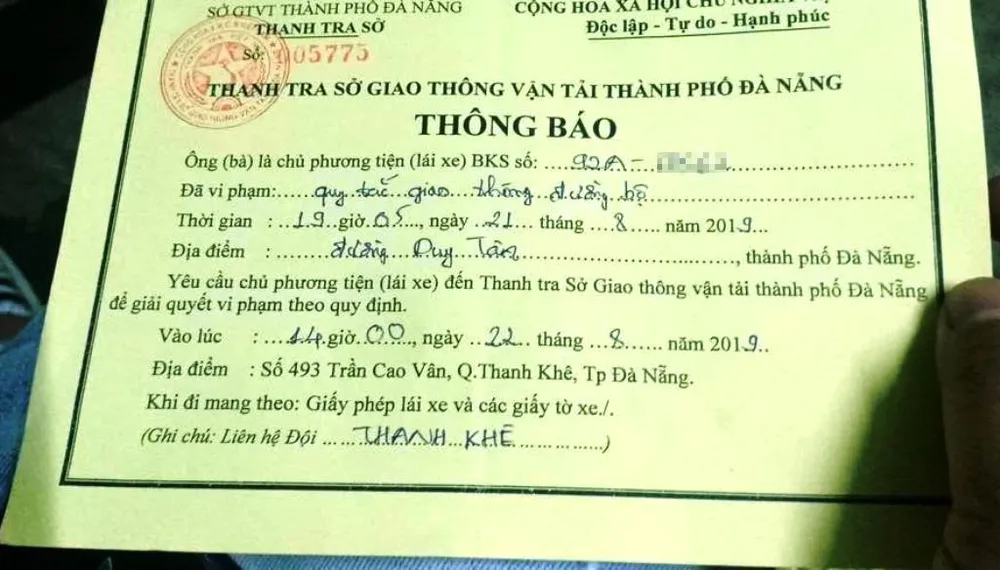 SỞ GTVT THÀNH PHỐ ĐÀ NẴNG
THANH TRA SỞ
Số: 005775
CỘNG HÒA XÃ HỘI CHỦ NGHĨA
Độc lập - Tự do - Hạnh phúc
THANH TRA SỞ GIAO THÔNG VẬN TẢI THÀNH PHỐ ĐÀ NẴNG
THÔNG BÁO
Ông (bà) là chủ phương tiện (lái xe) BKS số: 92A -
Đã vi phạm: quy tắc giao thông đường bộ
Thời gian : 19 giờ 05, ngày 21 tháng 8 năm 2019
Địa điểm : đường Duy Tân, thành phố Đà Nẵng.
Yêu cầu chủ phương tiện (lái xe) đến Thanh tra Sở Giao thông vận tải thành phố Đà Nẵng
để giải quyết vi phạm theo quy định.
Vào lúc : 14 giờ 00, ngày 22 tháng 8 năm 2019
Địa điểm : Số 493 Trần Cao Vân, Q.Thanh Khê, Tp Đà Nẵng.
Khi đi mang theo: Giấy phép lái xe và các giấy tờ xe./.
(Ghi chú: Liên hệ Đội THANH KHÊ)